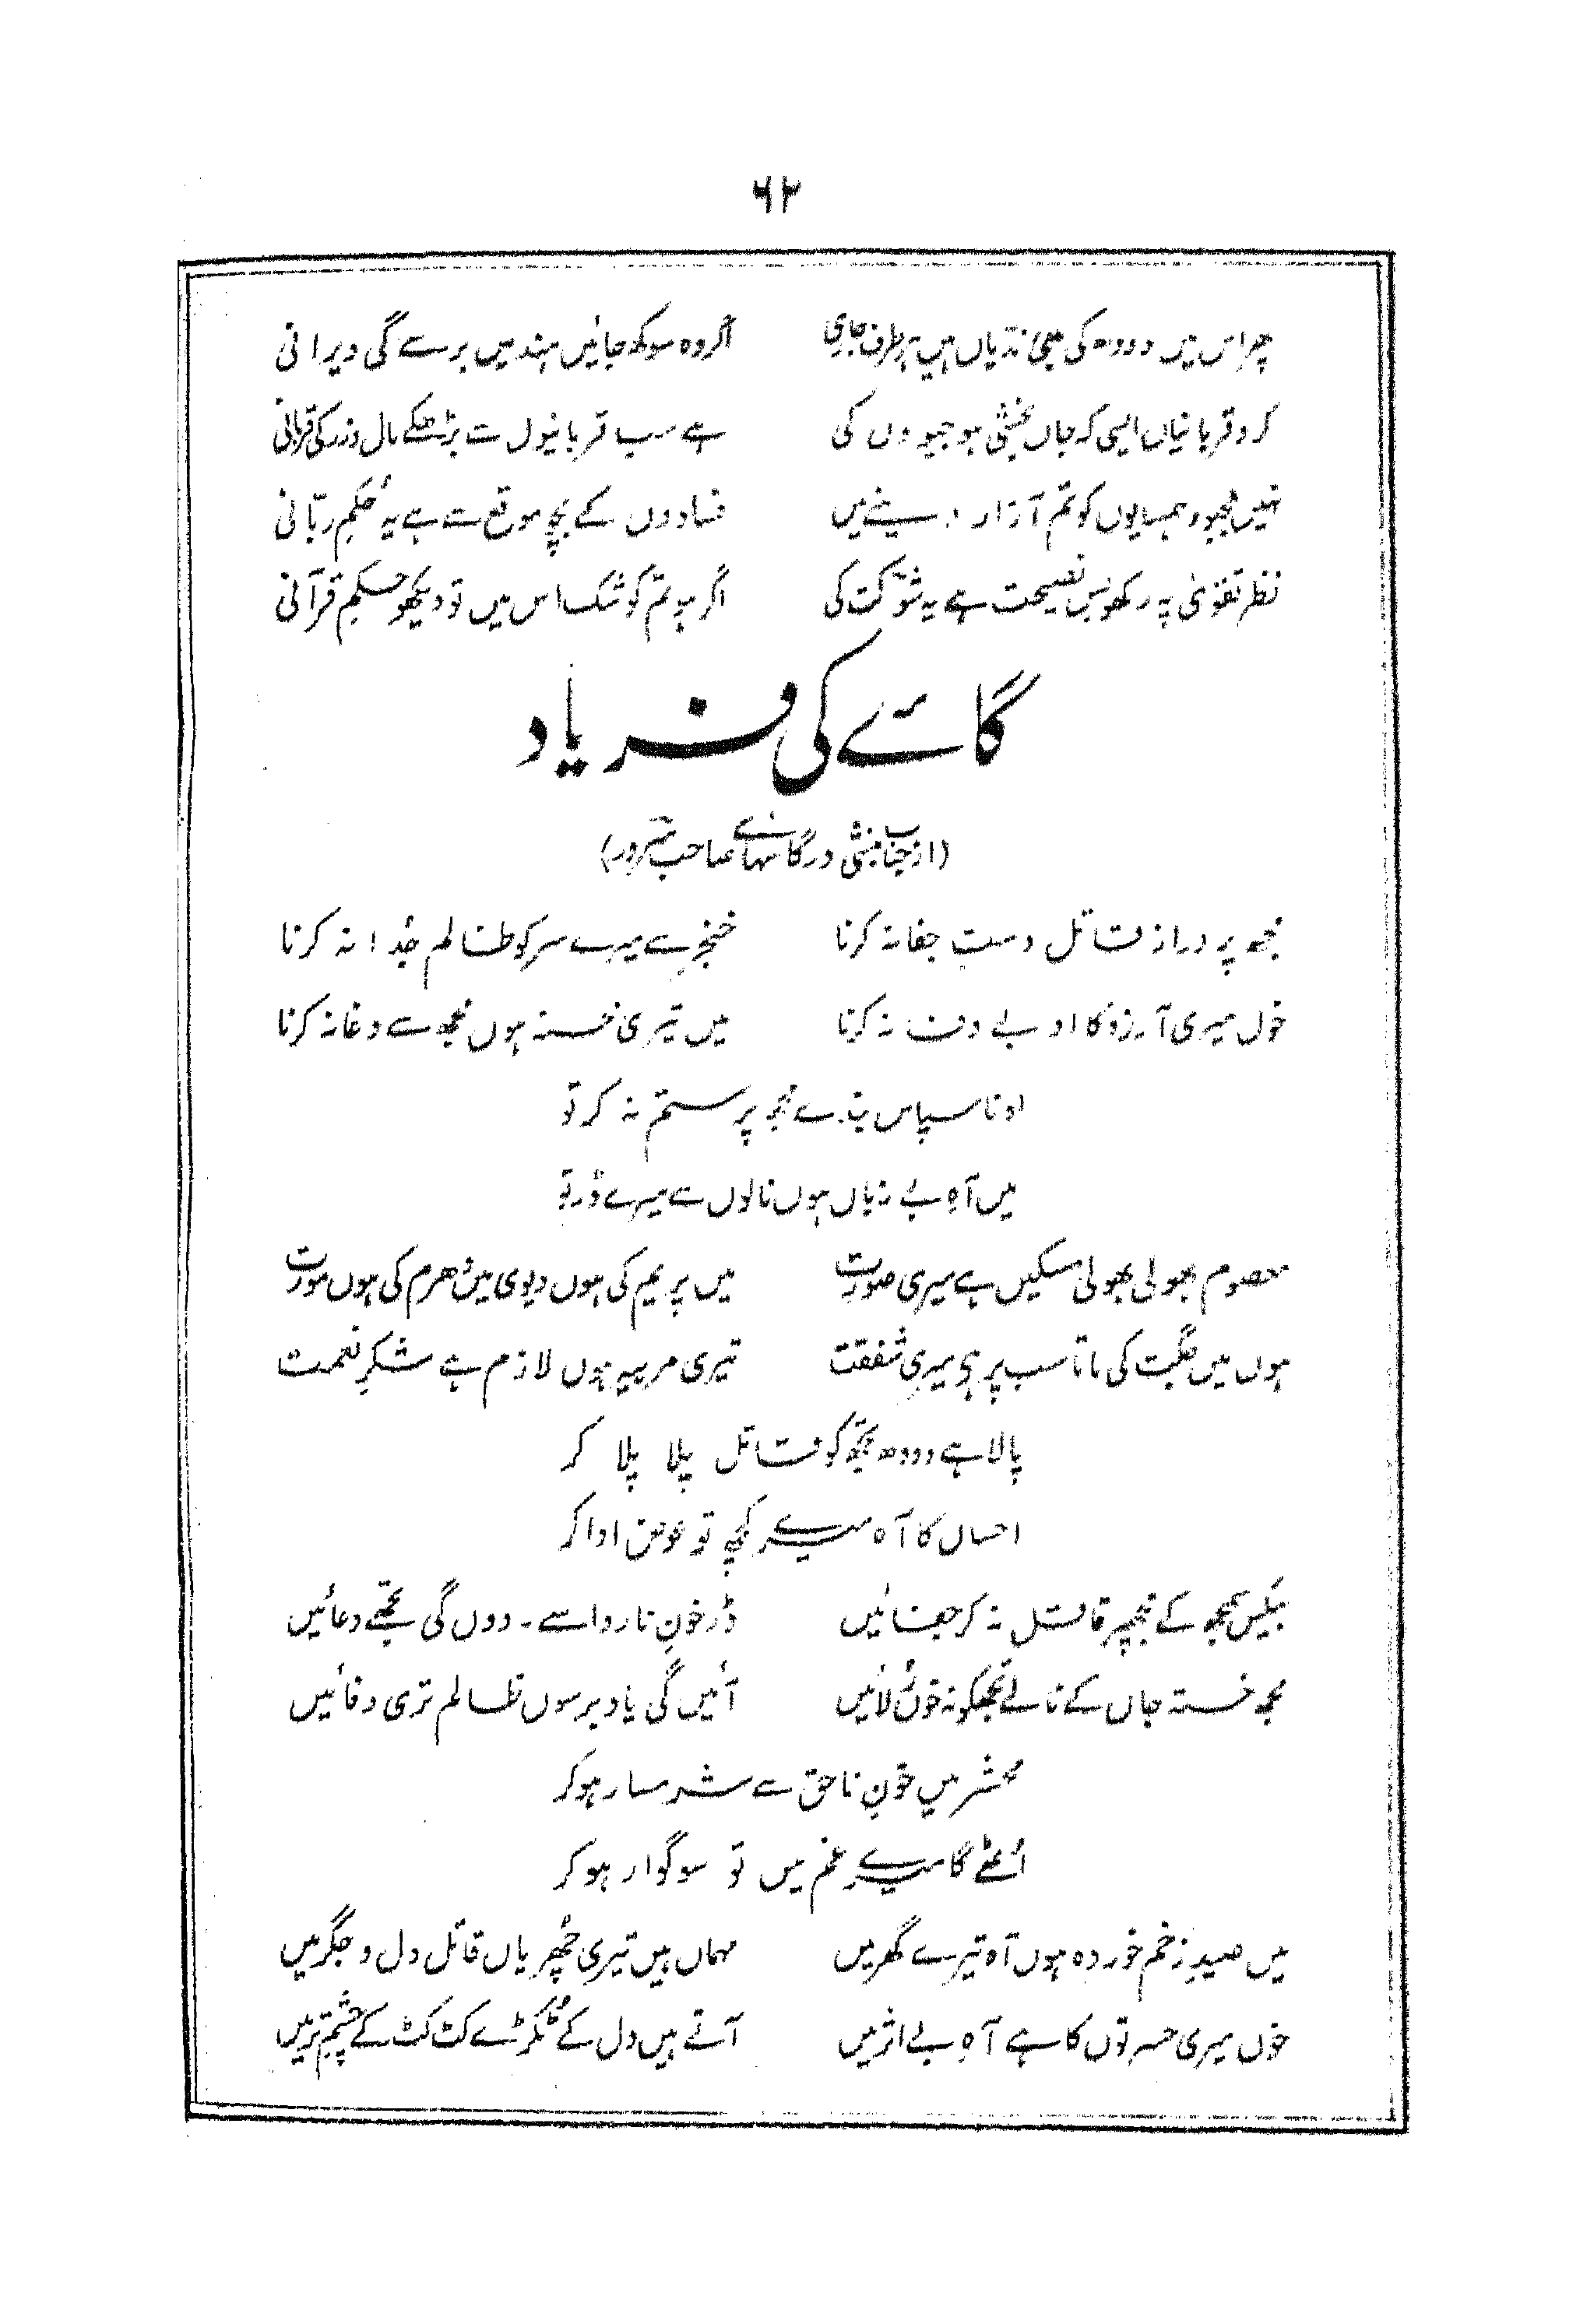 ۶۲
پھر اس میں دودھ کی بھی ندیاں ہیں ہر طرف جاری اگر وہ سوکھ جائیں ہند میں برسے گی ویرانی
کرو قربانیاں ایسی کہ جاں بخشی ہو جیووں کی ہے سب قربانیوں سے بڑھکے مال و زر کی قربانی
نہیں ہمسایوں کو تم آزار دینے میں فسادوں کے بچو موقع سے ہے یہ حُکمِ ربّانی
نظر تقویٰ پہ رکھو بس نصیحت ہے یہ شوکت کی اگر ہو تم کو شک اس میں تو دیکھو حکمِ قرآنی
گائے کی فریاد
(از جناب منشی درگا سہائے صاحب سرور)
مجھ پر دراز قاتل دست جفا نہ کرنا خنجر سے میرے سر کو ظالم جُدا نہ کرنا
خوں میری آرزو کا او بے وفا نہ کرنا میں تیری خستہ ہوں مجھ سے دغا نہ کرنا
او ناسپاس بندے مجھ پر ستم نہ کر تو
میں آہ بے زباں ہوں نالوں سے میرے ڈر تو
معصوم بھولی بھولی مسکیں ہے میری صورت میں پریم کی ہوں دیوی میں دھرم کی ہوں مورت
ہوں میں جگت کی ماتا سب پر ہے میری شفقت تیری مربیہ ہوں لازم ہے شکرِ نعمت
پالا ہے دودھ تجھ کو قاتل پلا پلا کر
احساں کا آہ میرے کچھ تو عوض ادا کر
بیکس سمجھ کے مجھپر قاتل نہ کر جفائیں ڈر خونِ ناروا سے۔ دوں گی تجھے دعائیں
مجھ خستہ جاں کے نالے تجھکو نہ خوں رُلائیں آئیں گی یاد برسوں ظالم تری وفائیں
محشر میں خونِ ناحق سے شرمسار ہو کر
اُٹھے گا میرے غم میں تو سوگوار ہو کر
میں صیدِ زخم خوردہ ہوں آہ تیرے گھر میں مہماں ہیں تیری چُھریاں قاتل دل و جگر میں
خوں میری حسرتوں کا ہے آہِ بے اثر میں آتے ہیں دل کے ٹُکڑے کٹ کٹ کے چشمِ تر میں